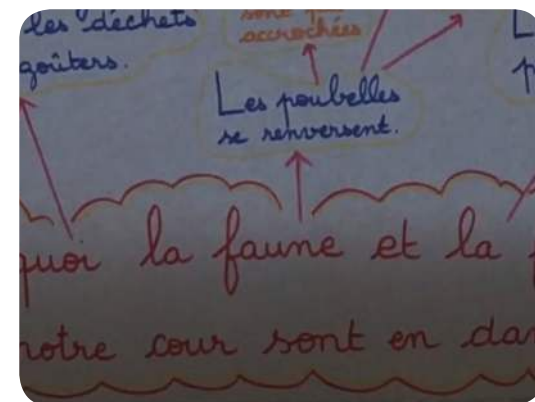 les déchets
goûters.
sont
accrochées
Les poubelles
se renversent.
quoi la faune et la
notre cour sont en dan